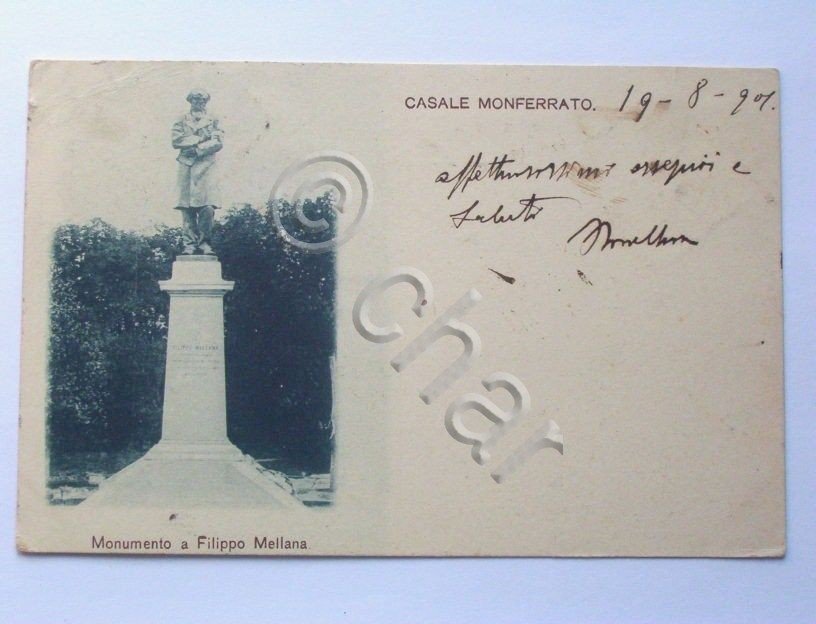 CASALE MONFERRATO. 19-8-901.
affettuosissimi ossequi e
saluti
FILIPPO MELLANA
Monumento a Filippo Mellana
© char